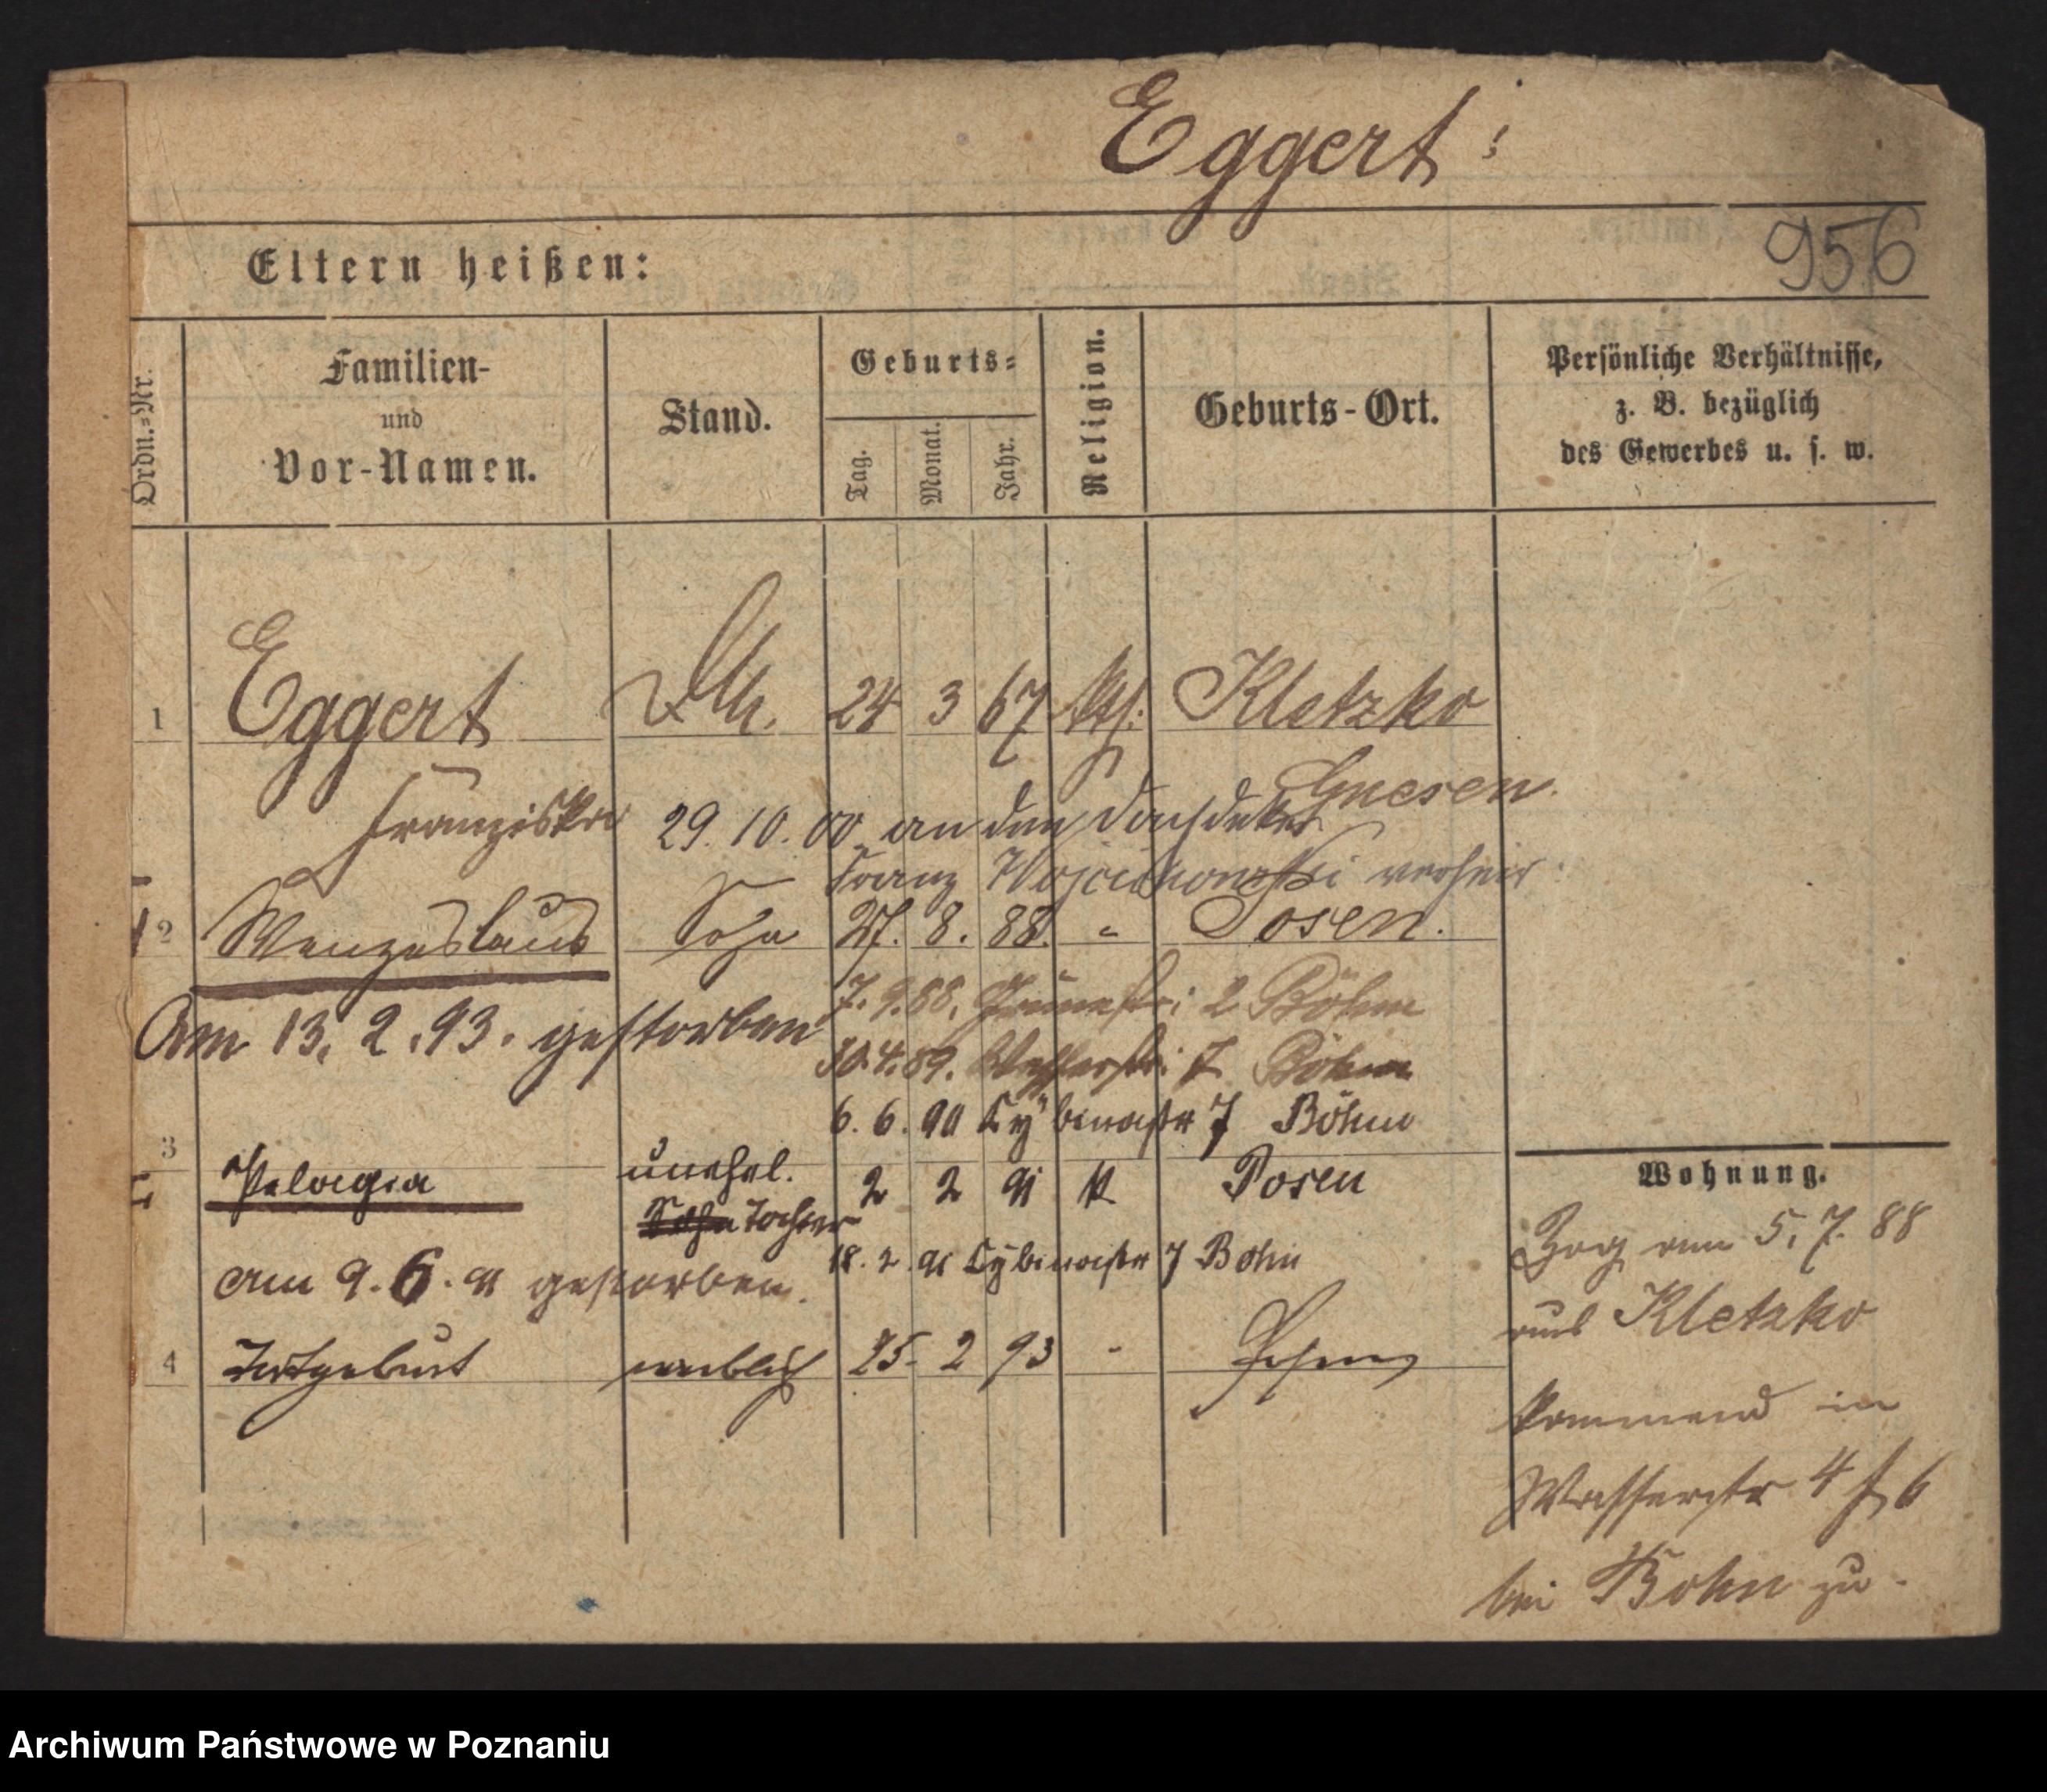 Eggert
956
Eltern heißen:
Ordn.-Nr.
Familien-
und
Vor-Namen.
Stand.
Geburts-
Tag.
Monat.
Jahr.
Religion.
Geburts-Ort.
Persönliche Verhältnisse,
z. B. bezüglich
des Gewerbes u. s. w.
1 Eggert 24 3 67 kth. Kletzko
Gnesen.
Franziska 29. 10. 00 an den Dachdecker
Franz verheir.
2 Wenzeslaus Sohn 27. 8. 88. " Posen.
7. 9. 88. 2 Böhm
Am 13. 2. 93. gestorben
30. 4. 89. Wasserstr. 7 Böhm
6. 6. 90 Cybinastr 7 Böhm
3 Pelagia unehel. 2 2 91 k Posen
Sohn Tochter
18. 2. 91 Cybinastr 7 Bohn
am 9. 6. 91 gestorben.
4 Totgeburt weiblich 25. 2 93 -
Wohnung.
Zog am 5. 7. 88
aus Kletzko
kommend in
Wasserstr 4 6
bei Bohn zu.
Archiwum Państwowe w Poznaniu